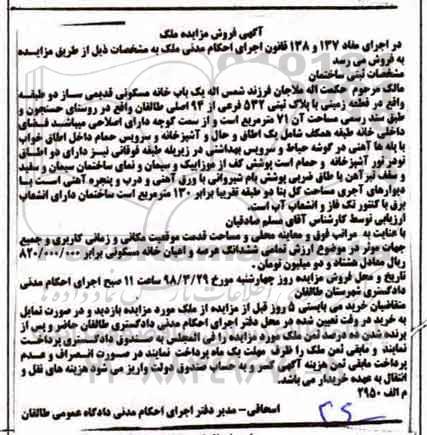 آگهی فروش مزایده ملک
در اجرای مفاد ۱۳۷ و ۱۳۸ قانون اجرای احکام مدنی ملک به مشخصات ذیل از طریق مزایده
به فروش می رسد
مشخصات ثبتی ساختمان
مالک مرحوم حکمت اله ملاجان فرزند شمس اله یک باب خانه مسکونی قدیمی ساز دو طبقه
واقع در قطعه زمینی با پلاک ثبتی ۵۳۲ فرعی از ۹۴ اصلی طالقان واقع در روستای حسنجون و
طبق سند رسمی مساحت آن ۷۱ مترمربع است و از سمت کوچه دارای اصلاحی میباشد فضای
داخلی خانه طبقه همکف شامل یک اطاق و حال و آشپزخانه و سرویس حمام داخل اطاق خواب
با پله ها آهنی در گوشه حیاط و سرویس بهداشتی در زیرپله طبقه فوقانی نیز دارای دو اطاق
تودرتور آشپزخانه و حمام است پوشش کف از موزاییک و سیمان و نمای ساختمان سیمان و سفید
و سقف تیرآهن با طاق ضربی پوشش بام شیروانی با ورق آهنی و درب و پنجره آهنی است با
دیوارهای آجری مساحت کل بنا دو طبقه تقریبا برابر ۱۳۰ مترمربع است ساختمان دارای انشعاب
برق با کنتور تک فاز و انشعاب آب است.
ارزیابی توسط کارشناس آقای مسلم صادقیان
با عنایت به مراتب فوق و معاینه محلی و مساحت قدمت موقعیت مکانی و زمانی کاربری و جمیع
جهات موثر در موضوع ارزش تمامی ششدانگ عرصه و اعیان خانه مسکونی برابر ۸۲۰/۰۰۰/۰۰۰
ریال معادل هشتاد و دو میلیون تومان.
تاریخ و محل فروش مزایده روز چهارشنبه مورخ ۹۸/۳/۲۹ ساعت ۱۱ صبح اجرای احکام مدنی
دادگستری شهرستان طالقان
متقاضیان خرید می بایستی ۵ روز قبل از مزایده از ملک مورد مزایده بازدید و در صورت تمایل
به خرید در وقت تعیین شده در محل دفتر اجرای احکام مدنی دادگستری طالقان حاضر و پس از
برنده شدن ده درصد ثمن ملک مورد مزایده را فی المجلس به صندوق دادگستری پرداخت
نمایند و مابقی ثمن ملک را ظرف مهلت یک ماه پرداخت نمایند در صورت انصراف و عدم
پرداخت مابقی ثمن هزینه آگهی کسر و به حساب صندوق دولت واریز می شود هزینه های نقل و
انتقال به عهده خریدار می باشد.
م الف ۲۹۵۰
اسحاقی - مدیر دفتر اجرای احکام مدنی دادگاه عمومی طالقان